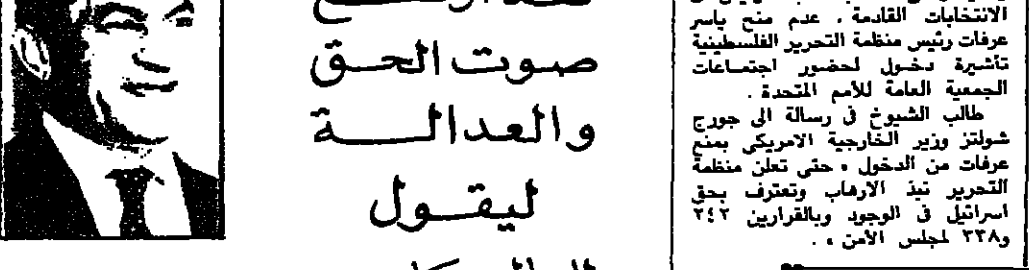 الانتخابات القادمة ، عدم منح ياسر
عرفات رئيس منظمة التحرير الفلسطينية
تأشيرة دخول لحضور اجتماعات
الجمعية العامة للأمم المتحدة .
طالب الشيوخ في رسالة الى جورج
شولتز وزير الخارجية الامريكى بمنع
عرفات من الدخول « حتى تعلن منظمة
التحرير نبذ الارهاب وتعترف بحق
اسرائيل فى الوجود وبالقرارين ٢٤٢
و٣٣٨ لمجلس الأمن » .
صوت الحق
والعدالة
ليقول